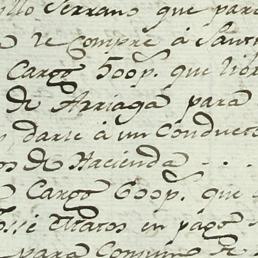 llo Serrano que para
a se compre à Santi
Cargo 500p. que libr
de Arriaga para
darle à un Conducto
os de Hacienda - . .
Cargo 600p. que -
Tratos en pago
para Consumo de